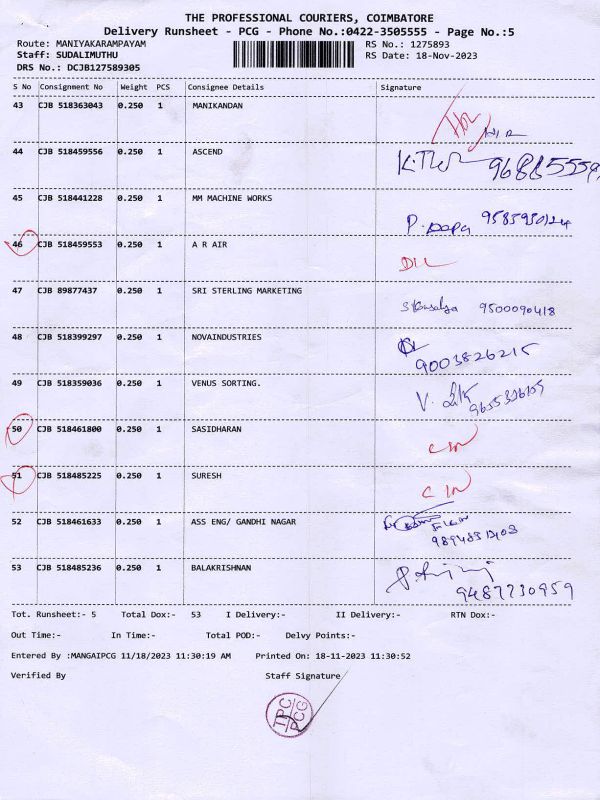 THE PROFESSIONAL COURIERS, COIMBATORE
Delivery Runsheet - PCG - Phone No.:0422-3505555 - Page No.:5
Route: MANIYAKARAMPAYAM RS No.: 1275893
Staff: SUDALIMUTHU RS Date: 18-Nov-2023
DRS No.: DCJB127589305
S No Consignment No Weight PCS Consignee Details Signature
43 CJB 518363043 0.250 1 MANIKANDAN
44 CJB 518459556 0.250 1 ASCEND
45 CJB 518441228 0.250 1 MM MACHINE WORKS
46 CJB 518459553 0.250 1 A R AIR
47 CJB 89877437 0.250 1 SRI STERLING MARKETING 9500090418
48 CJB 518399297 0.250 1 NOVAINDUSTRIES 9003826215
49 CJB 518359036 0.250 1 VENUS SORTING.
50 CJB 518461800 0.250 1 SASIDHARAN
51 CJB 518485225 0.250 1 SURESH
52 CJB 518461633 0.250 1 ASS ENG/ GANDHI NAGAR
53 CJB 518485236 0.250 1 BALAKRISHNAN 9487730959
Tot. Runsheet:- 5 Total Dox:- 53 I Delivery:- II Delivery:- RTN Dox:-
Out Time:- In Time:- Total POD:- Delvy Points:-
Entered By :MANGAIPCG 11/18/2023 11:30:19 AM Printed On: 18-11-2023 11:30:52
Verified By Staff Signature
TPC
PCG